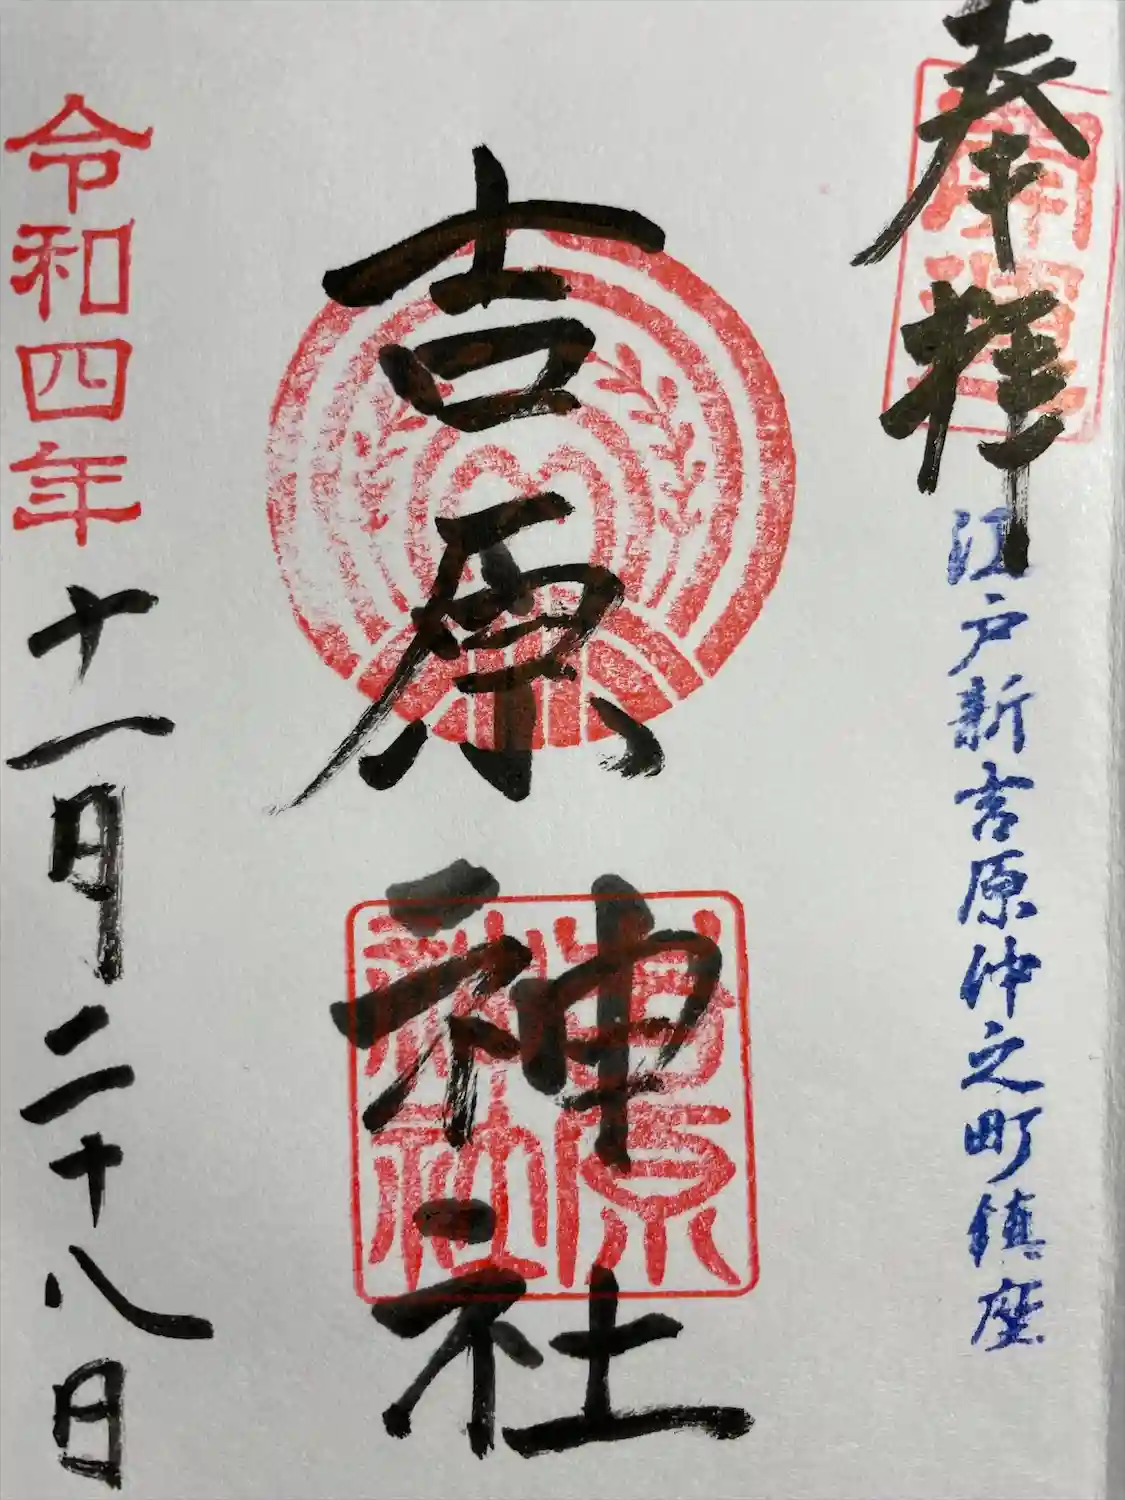 奉拝
江戸新吉原仲之町鎮座
吉原神社
吉原神社
令和四年十一月二十八日